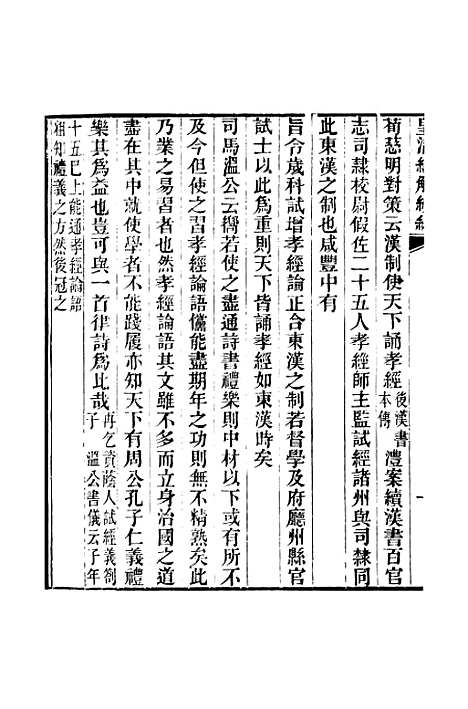 皇清經解續編
荀慈明對策云漢制使天下誦孝經後漢書本傳澧案續漢書百官
志司隸校尉假佐二十五人孝經師主監試經諸州與司隸同
此東漢之制也咸豐中有
旨令歲科試增孝經論正合東漢之制若督學及府廳州縣官
試士以此為重則天下皆誦孝經如東漢時矣
司馬溫公云嚮若使之盡通詩書禮樂則中材以下或有所不
及今但使之習孝經論語儻能盡期年之功則無不精熟矣此
乃業之易習者然孝經論語其文雖不多而立身治國之道
盡在其中就使學者不能踐履亦知天下有周公孔子仁義禮
樂其為益也豈可與一首律詩為比哉再乞資蔭人試經義劄子 溫公書儀云子年
十五巳上能通孝經論語
粗知禮義之方然後冠之